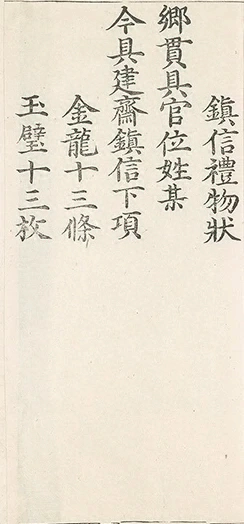 鎮信禮物狀
鄉貫具官位姓某
今具建齋鎮信下項
金龍十三條
玉璧十三枚